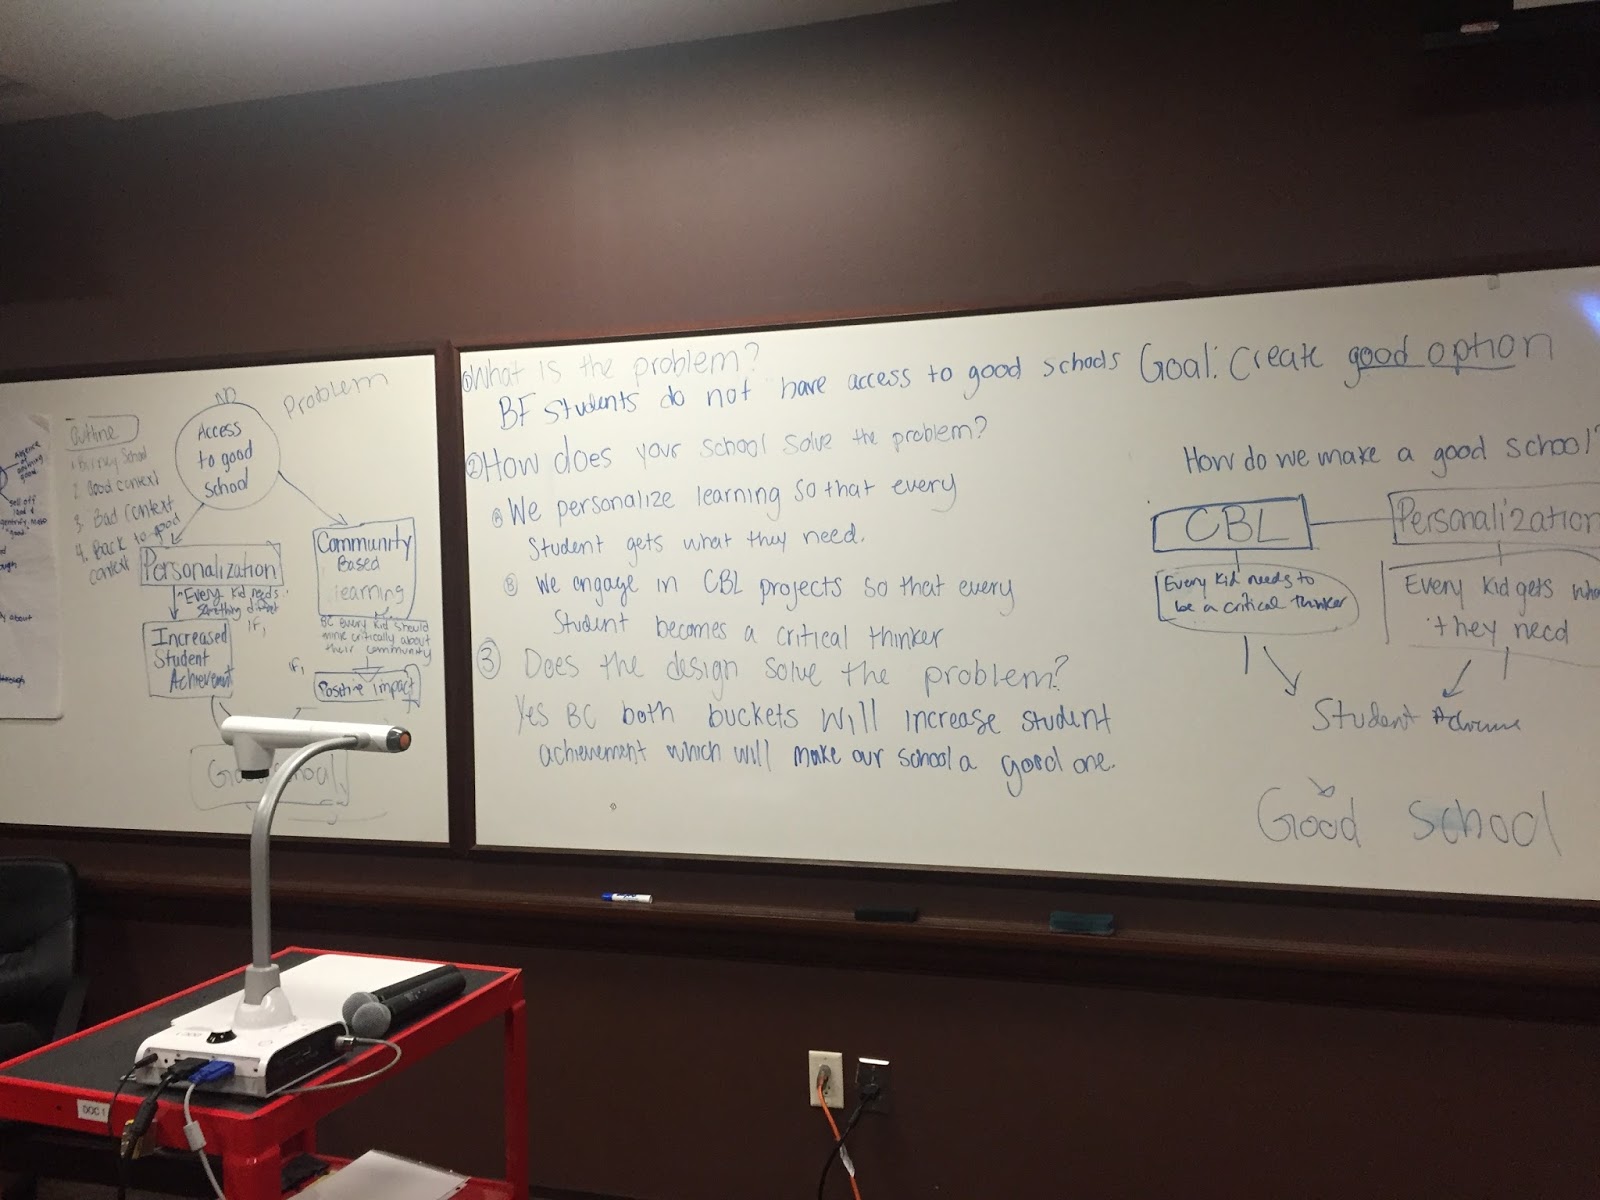 Absence of
sell off
land &
about
NO
Problem
Access
to good
school
Outline
1. School
2. Good context
3. Bad context
4. Back to good
context
Personalization
Every kid needs
something
if,
Increased
Student
Achievement
Community
Based
learning
BC every kid should
think critically about
their community
if,
Positive impact
Good School
① What is the problem?
BF students do not have access to good schools
② How does your school solve the problem?
Ⓐ We personalize learning so that every
student gets what they need.
Ⓑ We engage in CBL projects so that every
student becomes a critical thinker
③ Does the design solve the problem?
Yes BC both buckets will increase student
achievement which will make our school a good one.
Goal: Create good option
How do we make a good school?
CBL
Personalization
Every kid needs to
be a critical thinker
Every kid gets
they need
Student
Good school
DOC 1